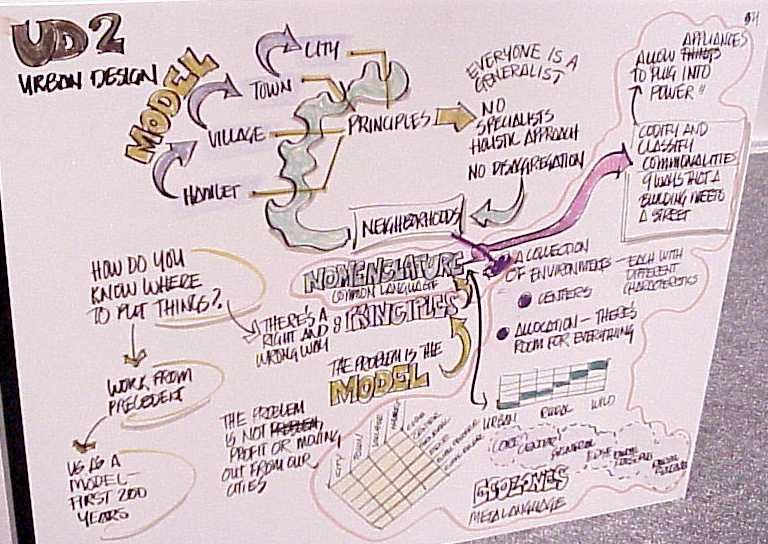 UD2
URBAN DESIGN
MODEL
CITY
TOWN
VILLAGE
HAMLET
PRINCIPLES
EVERYONE IS A
GENERALIST
NO
SPECIALISTS
HOLISTIC APPROACH
NO DISAGGREGATION
APPLIANCES
ALLOW THINGS
TO PLUG INTO
POWER"
CODIFY AND
CLASSIFY
COMMONALITIES
9 WAYS THAT A
BUILDING MEETS
A STREET
NEIGHBORHOODS
NOMENSLATURE
COMMON LANGUAGE
& PRINCIPLES
A COLLECTION
OF ENVIRONMENTS — EACH WITH
DIFFERENT
CHARACTERISTICS
CENTERS
ALLOCATION — THERE'S
ROOM FOR EVERYTHING
HOW DO YOU
KNOW WHERE
TO PUT THINGS?
THERE'S A
RIGHT AND
WRONG WAY
THE PROBLEM IS THE
MODEL
WORK FROM
PRECEDENT
US AS A
MODEL—
FIRST 200
YEARS
THE PROBLEM
IS NOT PROBLEM,
PROFIT OR MOVING
OUT FROM OUR
CITIES
URBAN RURAL WILD
CITY
TOWN
VILLAGE
HAMLET
CORE
CENTER
GENERAL
EDGE
RURAL
CORE
CENTER
GENERAL
EDGE
RURAL
RESERVE
RURAL
GEOZONES
METALANGUAGE